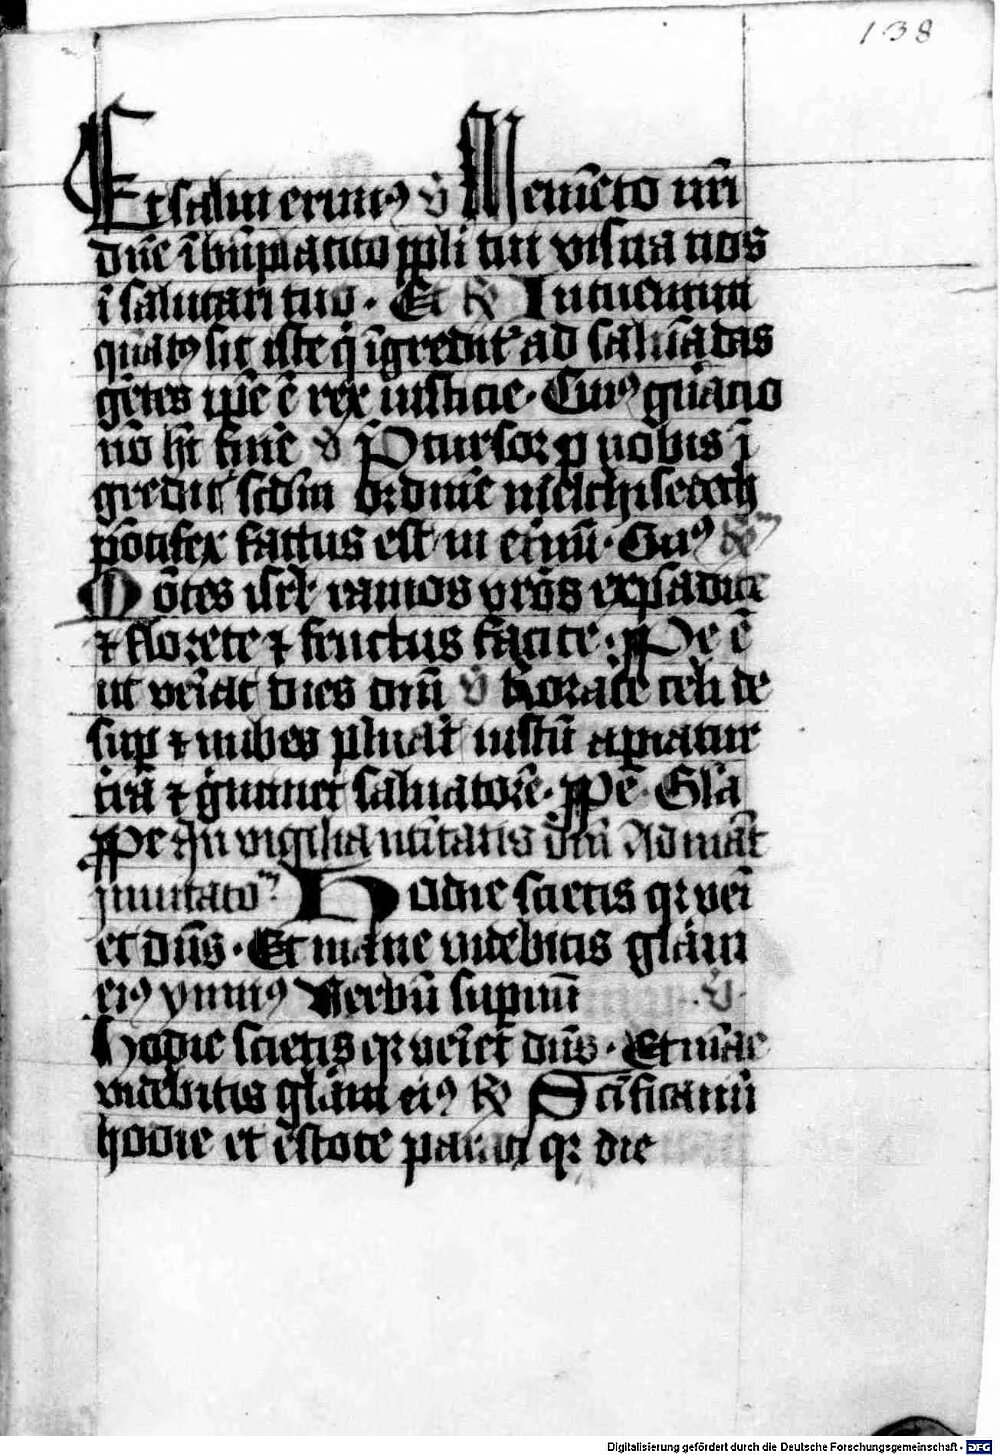 138
Et salui erimꝰ v̄ Memēto nr̄i
dn̄e ī bn̄placito ppl̄i tui visita nos
ī salutari tuo · Et ℟ Intuemini
quātꝰ sit iste q̄ īgredit̄ ad saluādas
gētes ip̄e ē rex iusticie · Cuiꝰ gn̄acio
nō hȝ finē v̄ Pcursor p nobis ī
gredit̄ scd̄m ordinē melchisedech
pōtifex factus est in et̄nū · Cuiꝰ
Mōtes isrl̄ ramos vr̄os expādite
⁊ florete ⁊ fructus facite · Ppe ē
ut veniat dies dn̄i v̄ Rorate celi de
sup̄ ⁊ nubes pluāt iustū apiatur
t̄ra ⁊ gm̄inet saluatorē · Ppe · Gl̄a
Ppe In vigilia natiuitatis dn̄i Ad mat̄
Inuitato᷑ Hodie scietis qꝛ veni
et dn̄s · Et mane videbitis glām
eiꝰ ymnꝰ Verbū supnū v̄
Hodie scietis qꝛ veniet dn̄s · Et māe
videbitis glām eiꝰ ℟ Scīficamī
hodie et estote parati qꝛ die
Digitalisierung gefördert durch die Deutsche Forschungsgemeinschaft - DFG